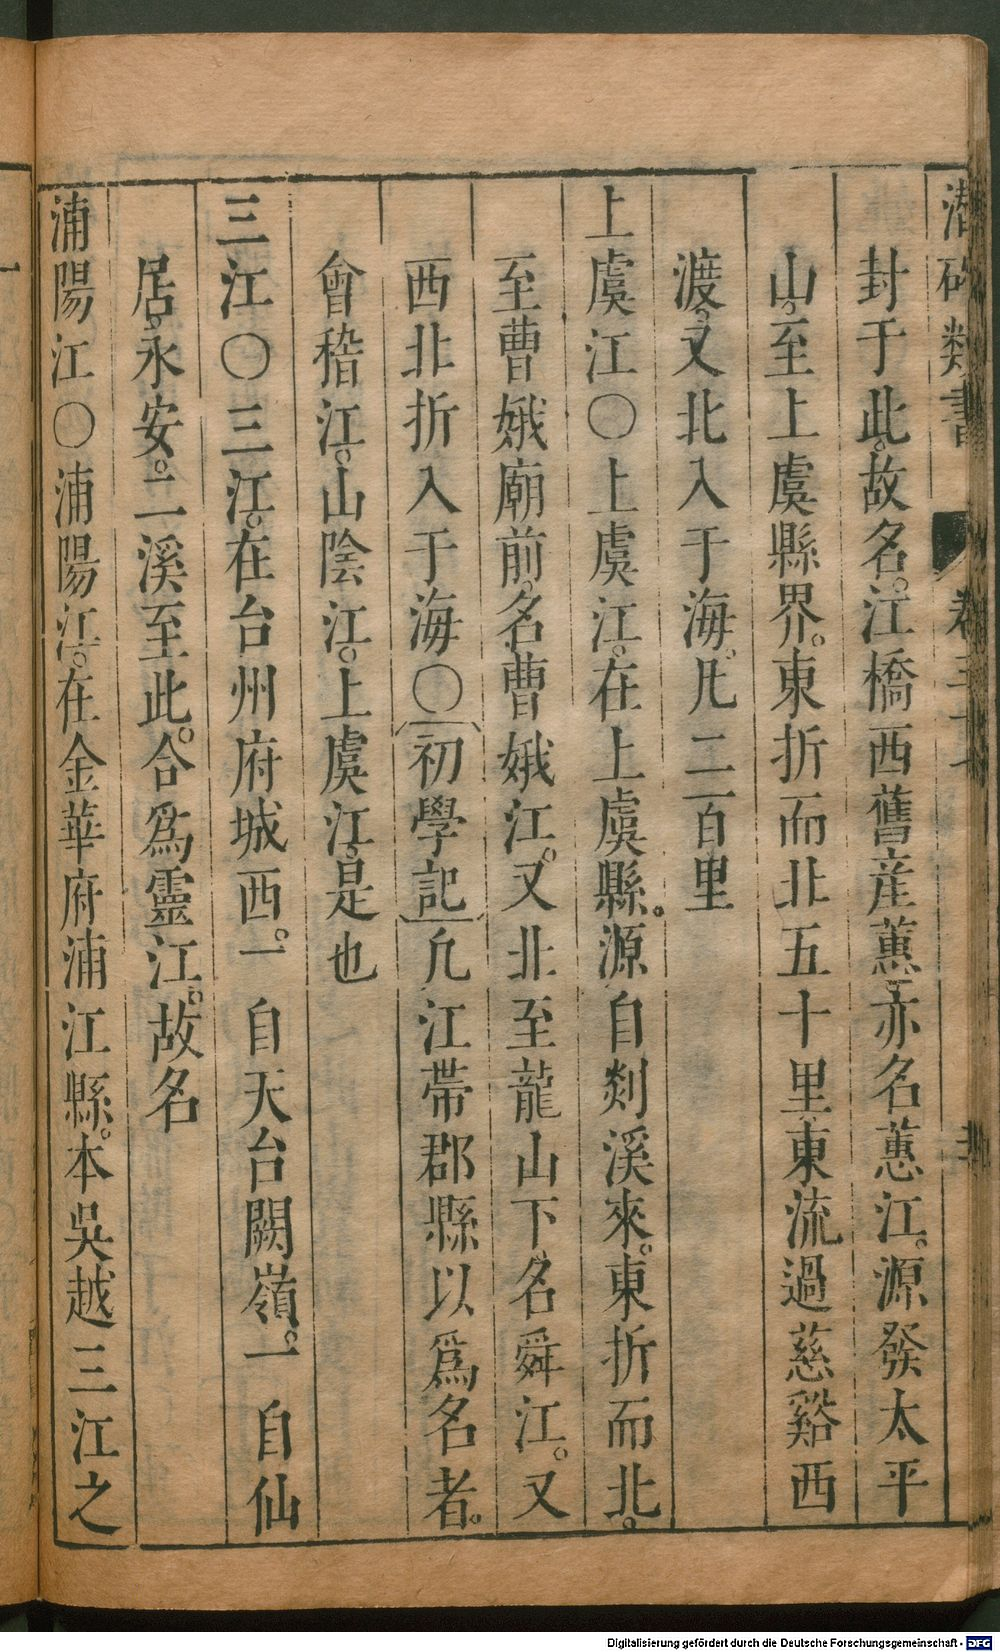 潛確類書 卷三十
封于此。故名。江橋西舊産蕙。亦名蕙江。源發太平
山。至上虞縣界。東折而北五十里。東流過慈谿西
渡。又北入于海。凡二百里
上虞江〇上虞江。在上虞縣。源自剡溪來。東折而北。
至曹娥廟前。名曹娥江。又北至龍山下。名舜江。又
西北折入于海〇初學記凡江帶郡縣以爲名者。
會稽江。山陰江。上虞江。是也
三江〇三江。在台州府城西。一自天台闕嶺。一自仙
居。永安。二溪至此。合爲靈江。故名
浦陽江〇浦陽江。在金華府浦江縣。本吳越三江之
一
Digitalisierung gefördert durch die Deutsche Forschungsgemeinschaft - DFG